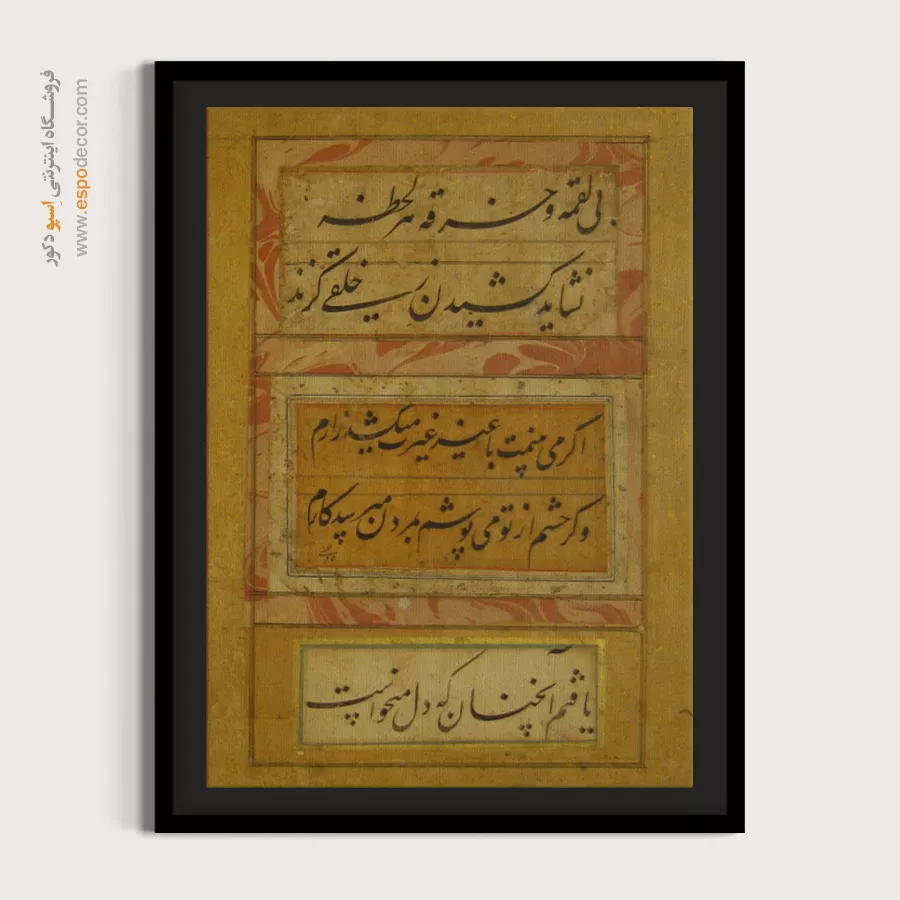 پی لقمه و خرقه هر لحظه
نشاید کشیدن ز هر خلقی گزند
اگر می بینمت با غیر غیرت میکشد زارم
وگر چشم از تو می پوشم بمردن میرسد کارم
یافتم آنچنان که دل میخواست
فروشگاه اینترنتی اِسپو دکور
www.espodecor.com